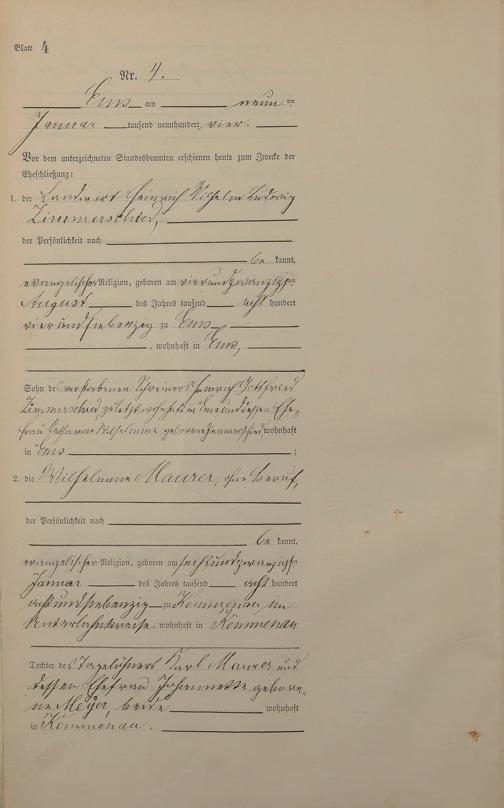 Blatt 4
Nr. 4.
Ems am neunten
Januar tausend neunhundert vier.
Vor dem unterzeichneten Standesbeamten erschienen heute zum Zwecke der
Eheschließung:
1. der Landwirt Heinrich Wilhelm Ludwig
Zimmerschied,
der Persönlichkeit nach
be kannt,
evangelischer Religion, geboren am vierundzwanzigsten
August des Jahres tausend acht hundert
vierundsiebenzig zu Ems
, wohnhaft in Ems,
Sohn des verstorbenen Schreiners Heinrich Gottfried
Zimmerschied zuletzt wohnhaft in Ems und dessen Ehe-
frau Catharine Wilhelmine geborene Zimmerschied wohnhaft
in Ems ;
2. die Wilhelmine Maurer, ohne Beruf,
der Persönlichkeit nach
be kannt,
evangelischer Religion, geboren am sechsundzwanzigsten
Januar des Jahres tausend acht hundert
achtundsiebenzig zu Kemmenau im
Unterlahnkreise, wohnhaft in Kemmenau
Tochter des Tagelöhners Karl Maurer und
dessen Ehefrau Johannette gebore-
ne Meyer, beide wohnhaft
in Kemmenau.